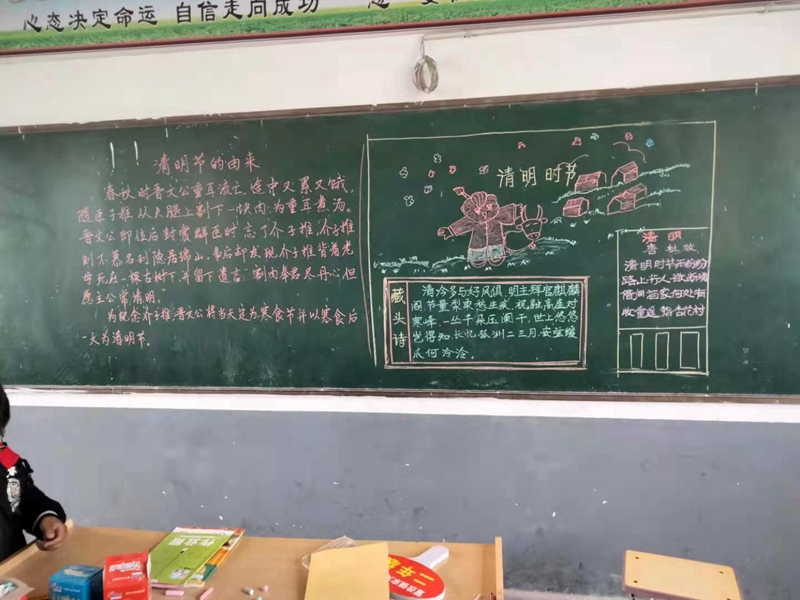 心态决定命运 自信走向成功
清明节的由来
春秋时晋文公重耳流亡途中又累又饿,
随臣子推从大腿上割下一块肉,为重耳煮汤。
晋文公即位后封赏群臣时忘了介子推,介子推
则不慕名利隐居绵山,事后却发现介子推背着老
母死在一棵古树下,并留下遗言:割肉奉君尽丹心,但
愿主公常清明。
为纪念介子推晋文公将当天定为寒食节并以寒食后
一天为清明节。
清明时节
藏头诗
清冷多与好风俱,明主拜官麒麟
阁节量梨栗愁生疾,祝融高座对
寒峰,一丛千朵压阑干,世上悠悠
岂得知,长忆孤洲二三月,安弦缓
爪何泠泠
清明
唐 杜牧
清明时节雨纷纷
路上行人欲断魂
借问酒家何处有
牧童遥指杏花村
作业
二年级